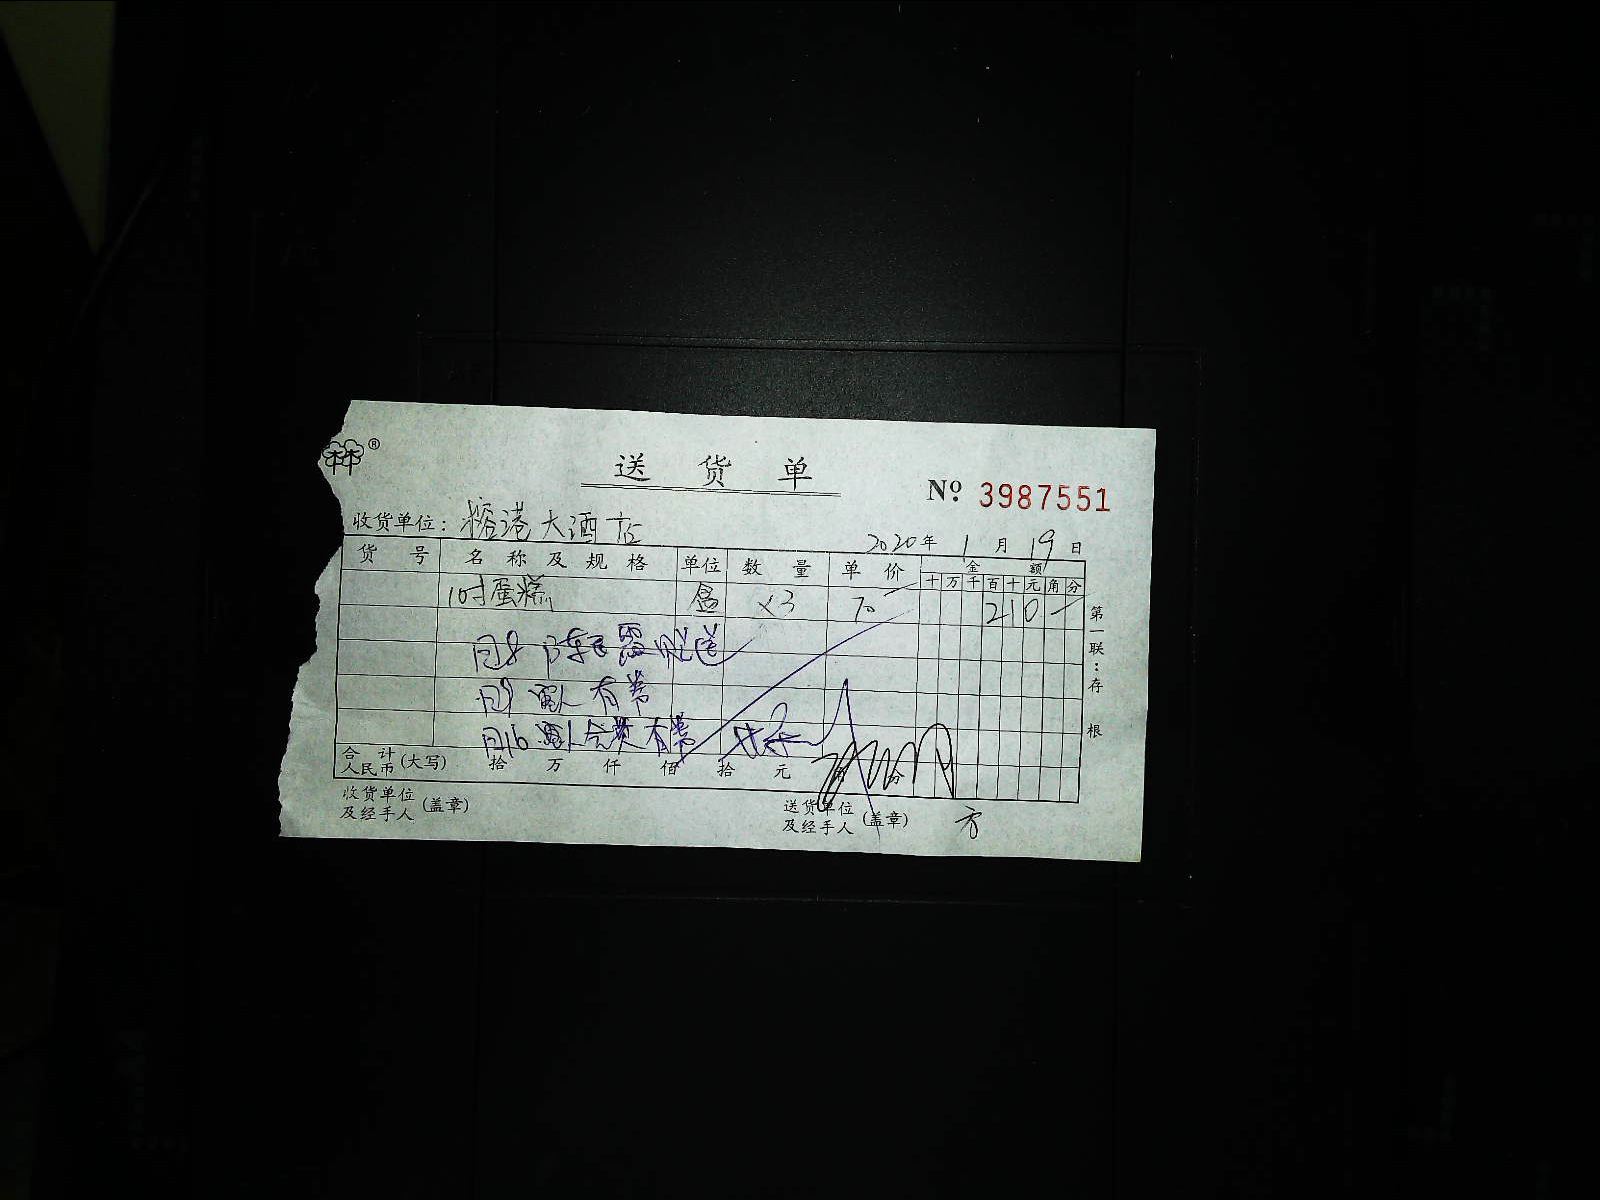 林®
送货单
№ 3987551
收货单位：榕港大酒店
2020年1月19日
货号 名称及规格 单位 数量 单价 金额
十万千百十元角分
10寸蛋糕 盒 ×3 70 210
赠送
有常
有常
合计人民币(大写) 拾 万 仟 佰 拾 元 分
收货单位及经手人(盖章)
送货单位及经手人(盖章) 方
第一联：存根